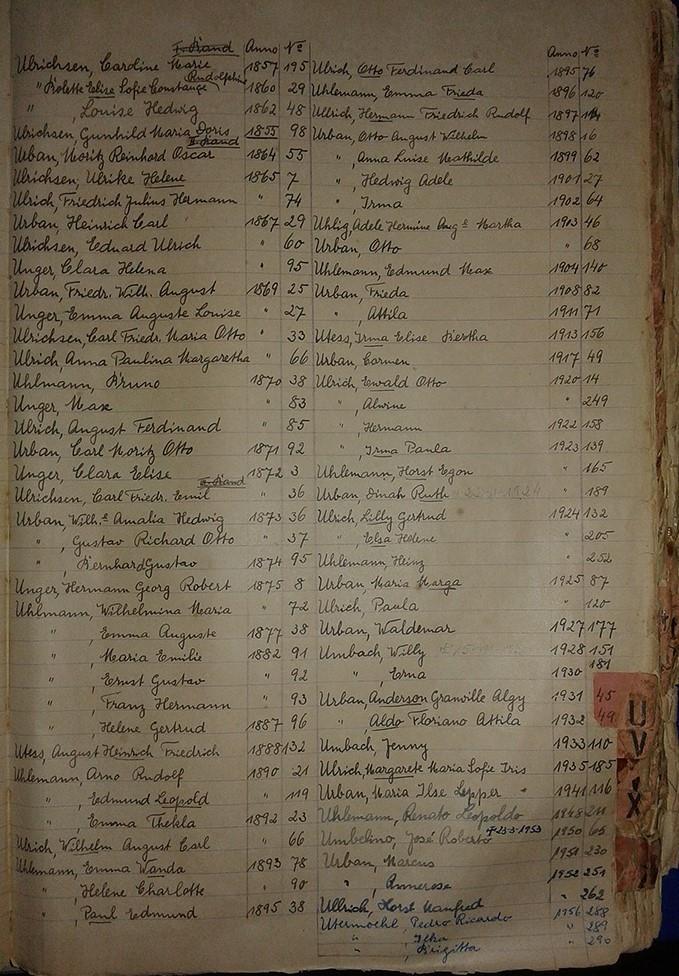 I. Band Anno No
Ulrichsen, Caroline Marie 1857 195
" Bolette Elise Sofie Constance Rudolphine 1860 29
" , Louise Hedwig 1862 48
Ulrichsen, Gunhild Maria Doris 1855 98
II. Band
Urban, Moritz Reinhard Oscar 1864 55
Ulrichsen, Ulrike Helene 1865 7
Ulrich, Friedrich Julius Hermann " 74
Urban, Heinrich Carl 1867 29
Ulrichsen, Eduard Ulrich " 60
Unger, Clara Helena " 95
Urban, Friedr. Wilh. August 1869 25
Unger, Emma Auguste Louise " 27
Ulrichsen, Carl Friedr. Maria Otto " 33
Ulrich, Anna Paulina Margaretha " 66
Uhlmann, Bruno 1870 38
Unger, Max " 83
Ulrich, August Ferdinand " 85
Urban, Carl Moritz Otto 1871 92
Unger, Clara Elise 1872 3
Band
Ulrichsen, Carl Friedr. Emil " 36
Urban, Wilh.e Amalia Hedwig 1873 36
" , Gustav Richard Otto " 37
" , Bernhard Gustav 1874 95
Unger, Hermann Georg Robert 1875 8
Uhlmann, Wilhelmina Maria " 72
" , Emma Auguste 1877 38
" , Maria Emilie 1882 91
" , Ernst Gustav " 92
" , Franz Hermann " 93
" , Helene Gertrud 1887 96
Utess, August Heinrich Friedrich 1888 132
Uhlemann, Arno Rudolf 1890 21
" , Edmund Leopold " 119
" , Emma Thekla 1892 23
Ulrich, Wilhelm August Carl " 66
Uhlemann, Emma Wanda 1893 78
" , Helene Charlotte " 90
" , Paul Edmund 1895 38
Anno No
Ulrich, Otto Ferdinand Carl 1895 76
Uhlemann, Emma Frieda 1896 120
Ullrich, Hermann Friedrich Rudolf 1897
Urban, Otto August Wilhelm 1898 16
" , Anna Luise Mathilde 1899 62
" , Hedwig Adele 1901 27
" , Irma 1902 64
Uhlig, Adele Hermine Aug.e Martha 1903 46
Urban, Otto " 68
Uhlemann, Edmund Max 1904 140
Urban, Frieda 1908 82
" , Attila 1911 71
Utess, Irma Elise Hertha 1913 156
Urban, Carmen 1917 49
Ulrich, Ewald Otto 1920 14
" , Alwine " 249
" , Hermann 1922 158
" , Irma Paula 1923 139
Uhlemann, Horst Egon " 165
Urban, Dinah Ruth " 189
Ulrich, Lilly Gertrud 1924 132
" , Elsa Helene " 205
Uhlemann, Heinz " 252
Urban, Maria Marga 1925 87
Ulrich, Paula " 120
Urban, Waldemar 1927 177
Umbach, Willy 1928 151
" , Erna 1930 181
Urban, Anderson Granville Algy 1931 45
" , Aldo Floriano Attila 1932 49
Umbach, Jenny 1933 110
Ulrich, Margarete Maria Sofie Iris 1935 185
Urban, Maria Ilse Lepper 1941 116
Uhlemann, Renato Leopoldo 1948 211
Umbelino, José Roberto + 23-3-1953 1950 65
Urban, Marcus 1951 230
" , Annerose 1952 251
" 262
Ullrich, Horst Manfred 1956 288
Utermoehl, Pedro Ricardo " 289
" , Ilka " 290
" , Birgitta
U
V
X